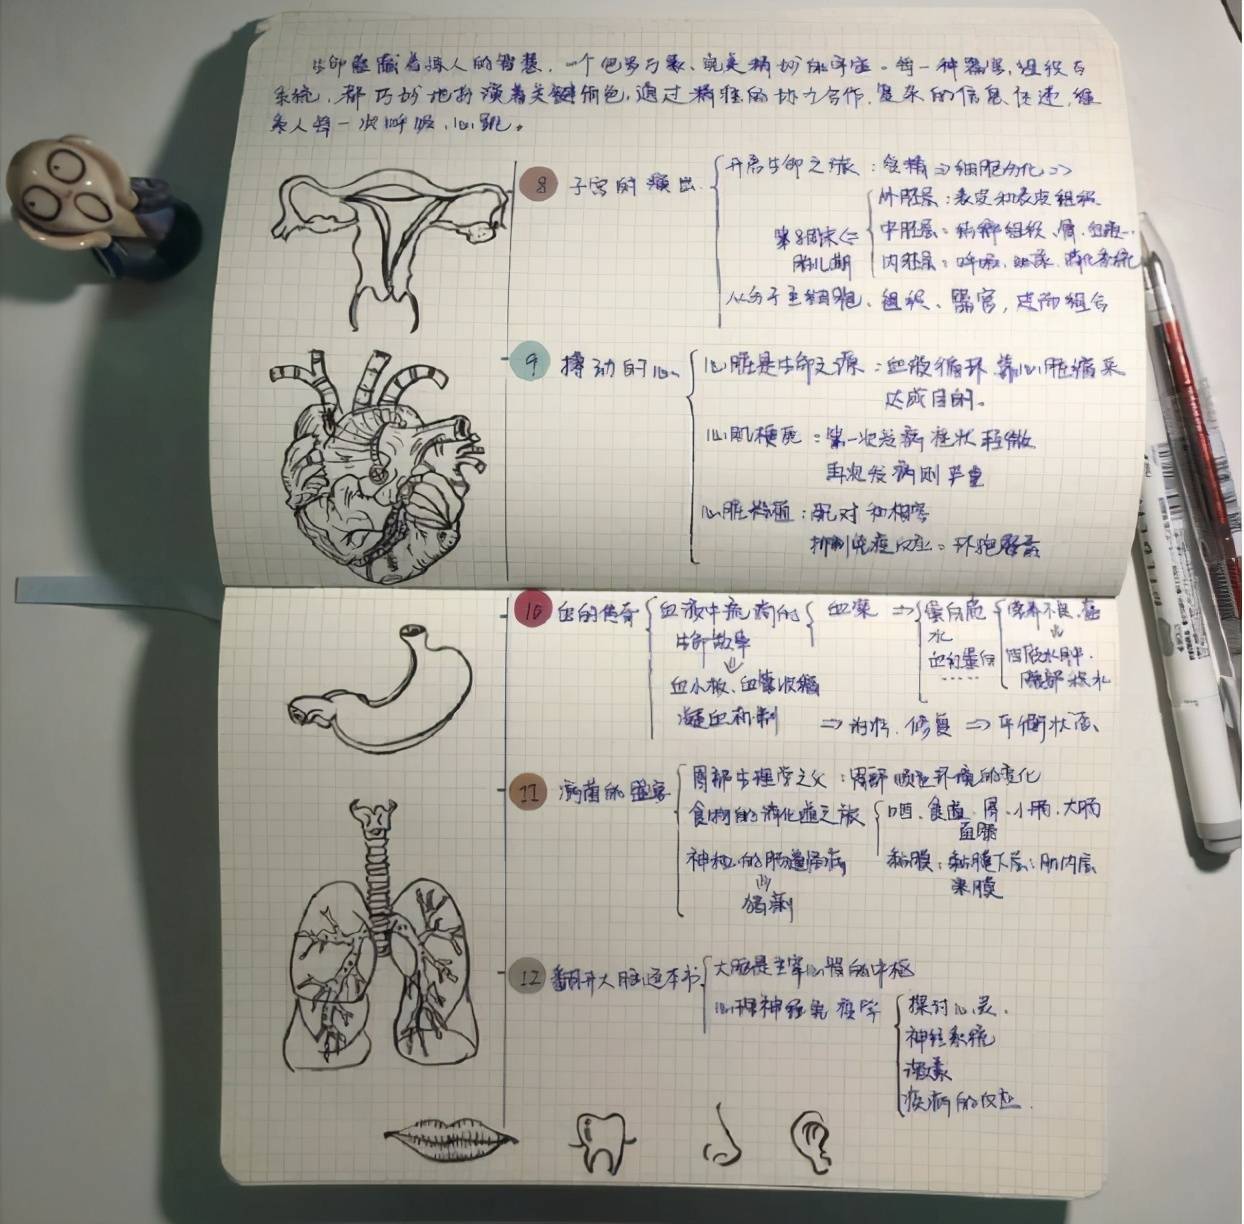 生命蕴藏着惊人的智慧，一个包罗万象、完美精妙的宇宙。每一种器官，组织与
系统，都巧妙地扮演着关键角色，通过精准的协力合作，复杂的信息传递，维
系人每一次呼吸、心跳。
8 子宫的演出
开启生命之旅：受精⇒细胞分化⇒
外胚层：表皮和表皮组织
第8周末⇐ 中胚层：结缔组织、骨、血液…
胎儿期 内胚层：呼吸、泌尿、消化系统
从分子至细胞、组织、器官，
9 搏动的心
心脏是生命之源：血液循环靠心脏缩来
达成目的。
心肌梗死：第一次发病症状轻微
再次发病则严重
心脏移植：配对和相容
抑制免疫反应：环孢霉素
10 血的传奇
血液中流淌的 血浆 ⇒ 蛋白质 营养不良
生命故事 水
血红蛋白 四肢水肿.
血小板、血管收缩 腹部积水
凝血机制 ⇒ 修复 ⇒ 平衡状态
11
胃部生理学之父：胃部 环境的变化
食物的消化道之旅 口、食道、胃、小肠、大肠
直肠
神秘的肠道怪病 黏膜；黏膜下层；肌内层
浆膜
12 翻开大脑这本书
大脑是主宰心智的中枢
心理神经免疫学 探讨心灵.
神经系统
激素
疾病的反应.